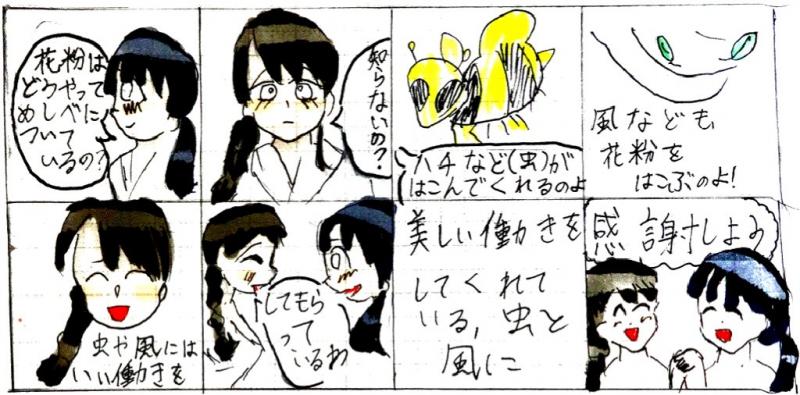 花粉は
どうやって
めしべに
ついて
いるの?
知らないの?
ハチなど(虫)が
はこんでくれるのよ
風なども
花粉を
はこぶのよ!
虫や風には
いい働きを
してもら
って
いるわ
美しい働きを
してくれて
いる,虫と
風に
感謝しよう